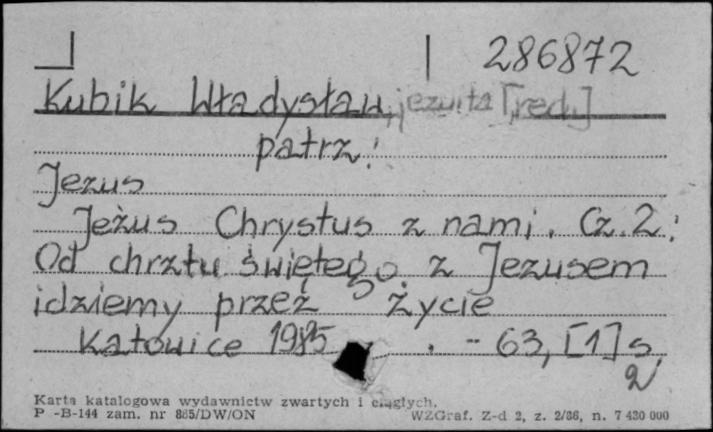 286872
Kubik Władysław, jezuita [red.]
patrz:
Jezus
Jezus Chrystus z nami. Cz. 2:
Od chrztu świętego z Jezusem
idziemy przez życie
Katowice 1985 . - 63, [1] s.
2
Karta katalogowa wydawnictw zwartych i ciągłych.
P -B-144 zam. nr 885/DW/ON WZGraf. Z-d 2, z. 2/86, n. 7 430 000